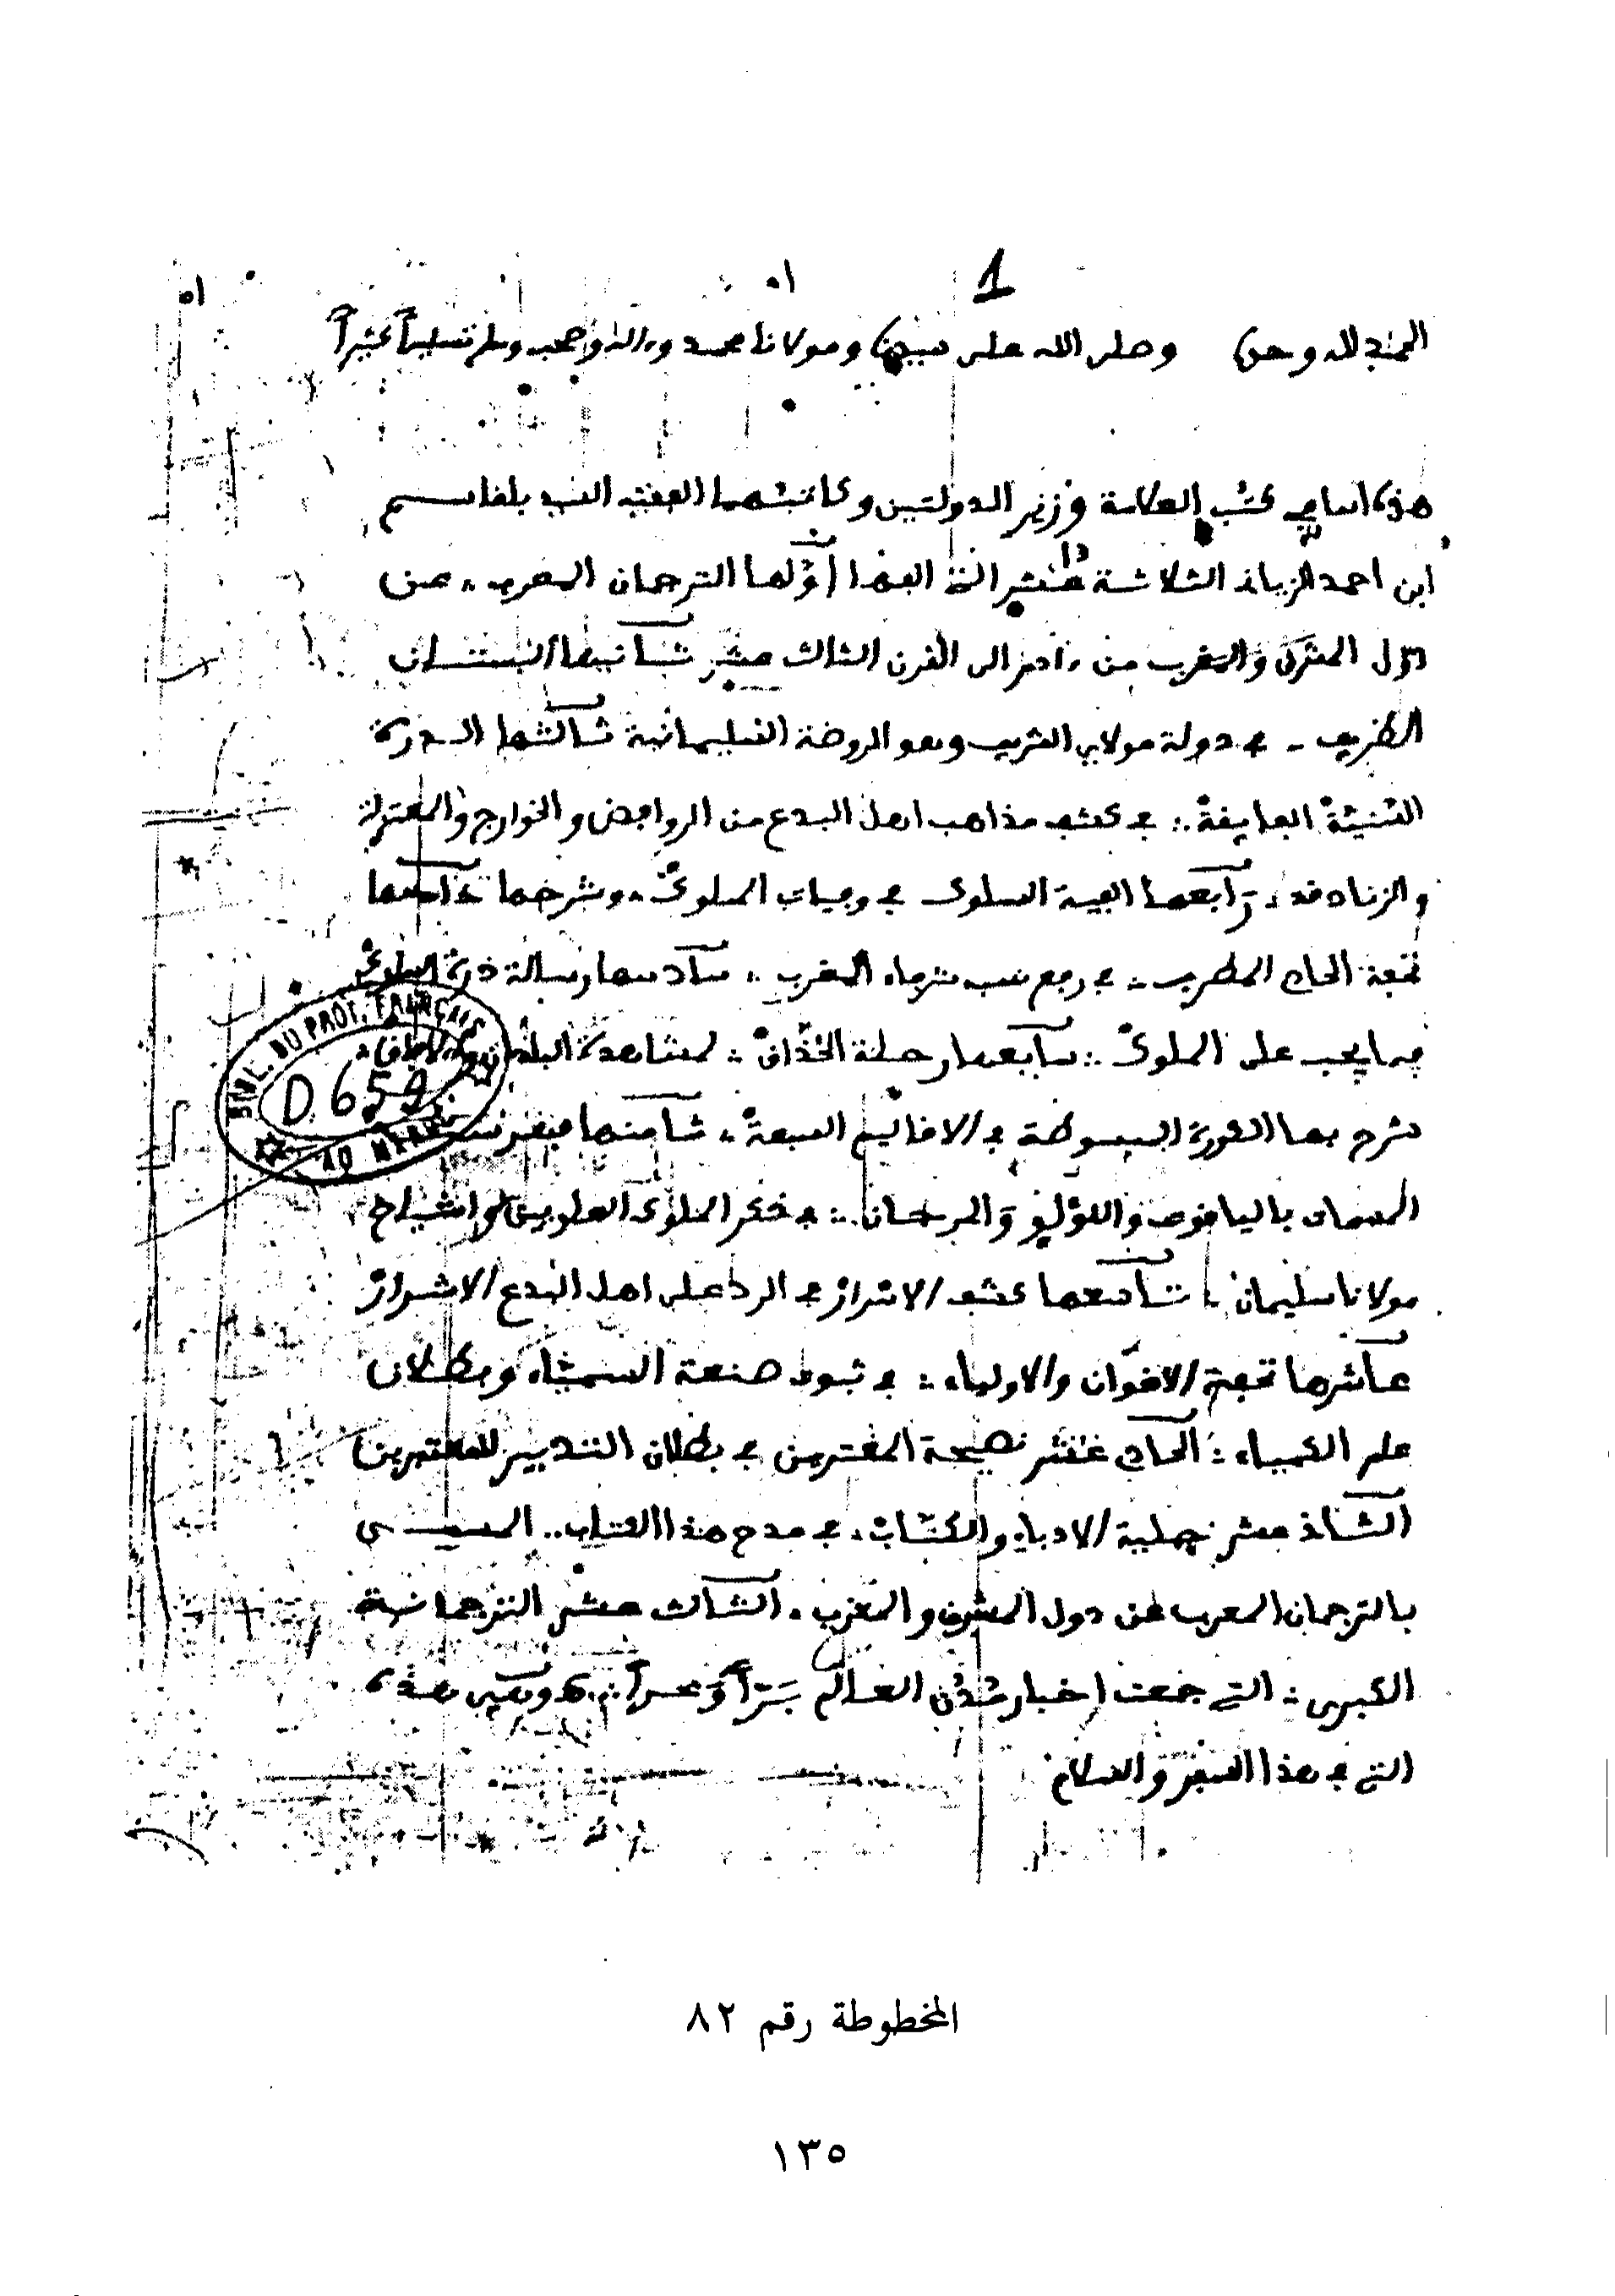 1
الحمد لله وحده وصلى الله على سيدنا ومولانا محمد وءاله وصحبه وسلم تسليماً كثيراً
هذه اسامي كتب العلامة وزير الدولتين وكاتبهما الفقيه السيد بلقاسم
ابن احمد الزياني الثلاثة عشر التي الفها اولها الترجمان المعرب، عن
دول المشرق والمغرب من ءادم الى القرن الثالث عشر ثانيها البستان
الظريف في دولة مولاي الشريف وهو الروضة السليمانية ثالثها الدرة
السنية الفايقة في كشف مذاهب اهل البدع من الروافض والخوارج والمعتزلة
والزنادقة، رابعها الفية السلوك في وفيات الملوك، وشرحها خامسها
تحفة الحادي المطرب في رفع نسب شرفاء المغرب سادسها رسالة درة السلوك
فيما يجب على الملوك سابعها رحلة الحذاق لمشاهدة البلدان والافاق
شرح بها الكورة المبسوطة في الاقاليم السبعة، ثامنها
المسماة بالياقوت واللؤلؤ والمرجان في ذكر الملوك العلويين واشياخ
مولانا سليمان تاسعها كشف الاسرار في الرد على اهل البدع الاشرار
عاشرها تحفة الاخوان والاولياء في ثبوت صنعة السيمياء وبطلان
علم الكيمياء الحادي عشر نصيحة المغترين في بطلان التدبير للمعتمرين
الثاني عشر جملية الادباء والكتاب، في مدح هذا الكتاب المسمى
بالترجمان المعرب عن دول المشرق والمغرب، الثالث عشر الترجمانة
الكبرى التي جمعت اخبار مدن العالم براً وبحراً وهي هذه
التي في هذا السفر والسلام
BIBL. DU PROT. FRANÇAIS
D 659
AU MAROC
المخطوطة رقم ٨٢
١٣٥